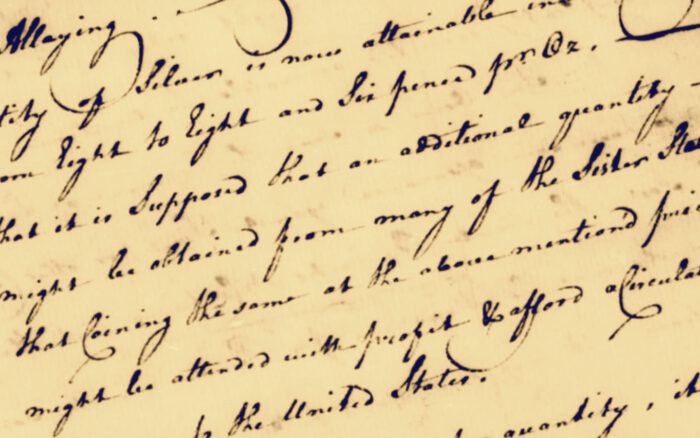 Allaying.
tity of Silver is now attainable in
om Eight to Eight and Six pence pr. Oz.
that it is Supposed that an additional quantity
might be obtained from many of the Sister Sta
that Coining the same at the above mentiond
might be attended with profit & afford a Circula
to the United States.
quantity, it